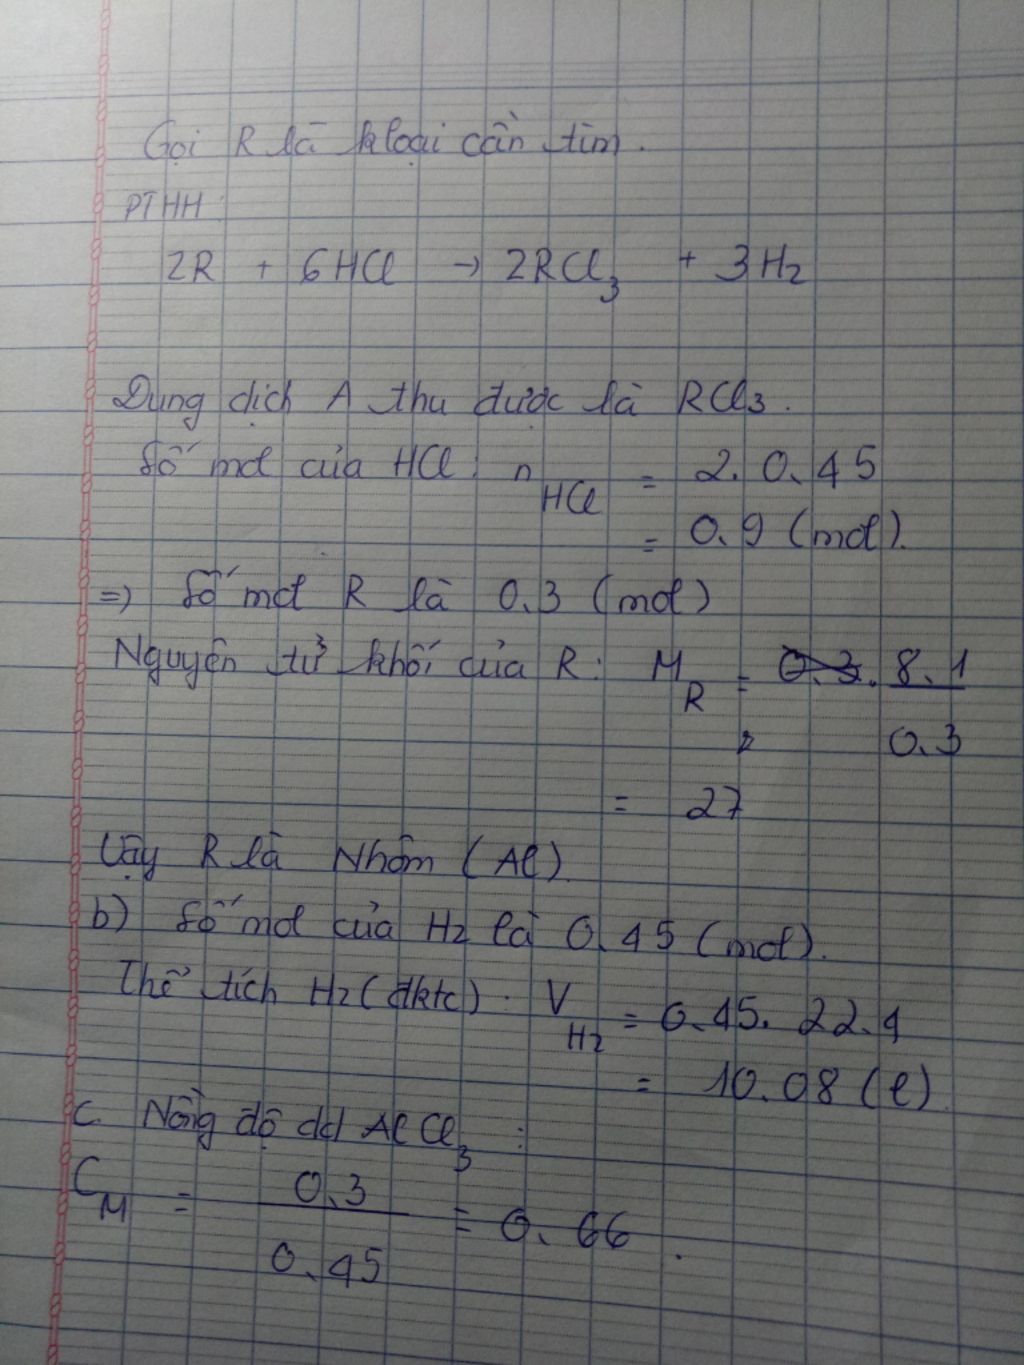 Gọi R là kloại cần tìm.
PTHH:
2R + 6HCl → 2RCl3 + 3H2
Dung dịch A thu được là RCl3.
Số mol của HCl: nHCl = 2.0.45
= 0.9 (mol).
=) Số mol R là 0.3 (mol)
Nguyên tử khối của R: MR = 8.1
0.3
= 27
Vậy R là Nhôm (Al)
b) Số mol của H2 là 0.45 (mol).
Thể tích H2 (đktc). VH2 = 0.45. 22.4
= 10.08 (l)
c. Nồng độ dd AlCl3 :
CM = 0.3 = 0.66.
0.45